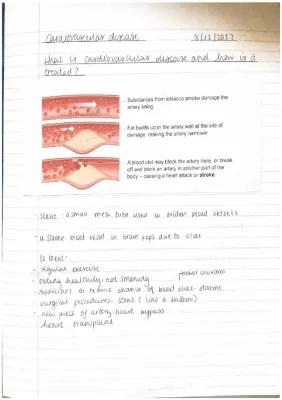 Cardiovascular disease 8/12/2017
What is cardiovascular disease and how is it
treated?
Substances from tobacco smoke damage the
artery lining
Fat builds up in the artery wall at the site of
damage, making the artery narrower
A blood clot may block the artery here, or break
off and block an artery in another part of the
body – causing a heart attack or stroke.
- stent - a small mesh tube used to widen blood vessels
- a stroke - blood vessel in brain pops due to clots
to treat:
- regular exercise
- eating healthily, not smoking
prevent
- medicines to reduce chance of blood clots - statins
- surgical procedures - stent (like a balloon)
- new piece of artery - heart bypass
- heart transplant